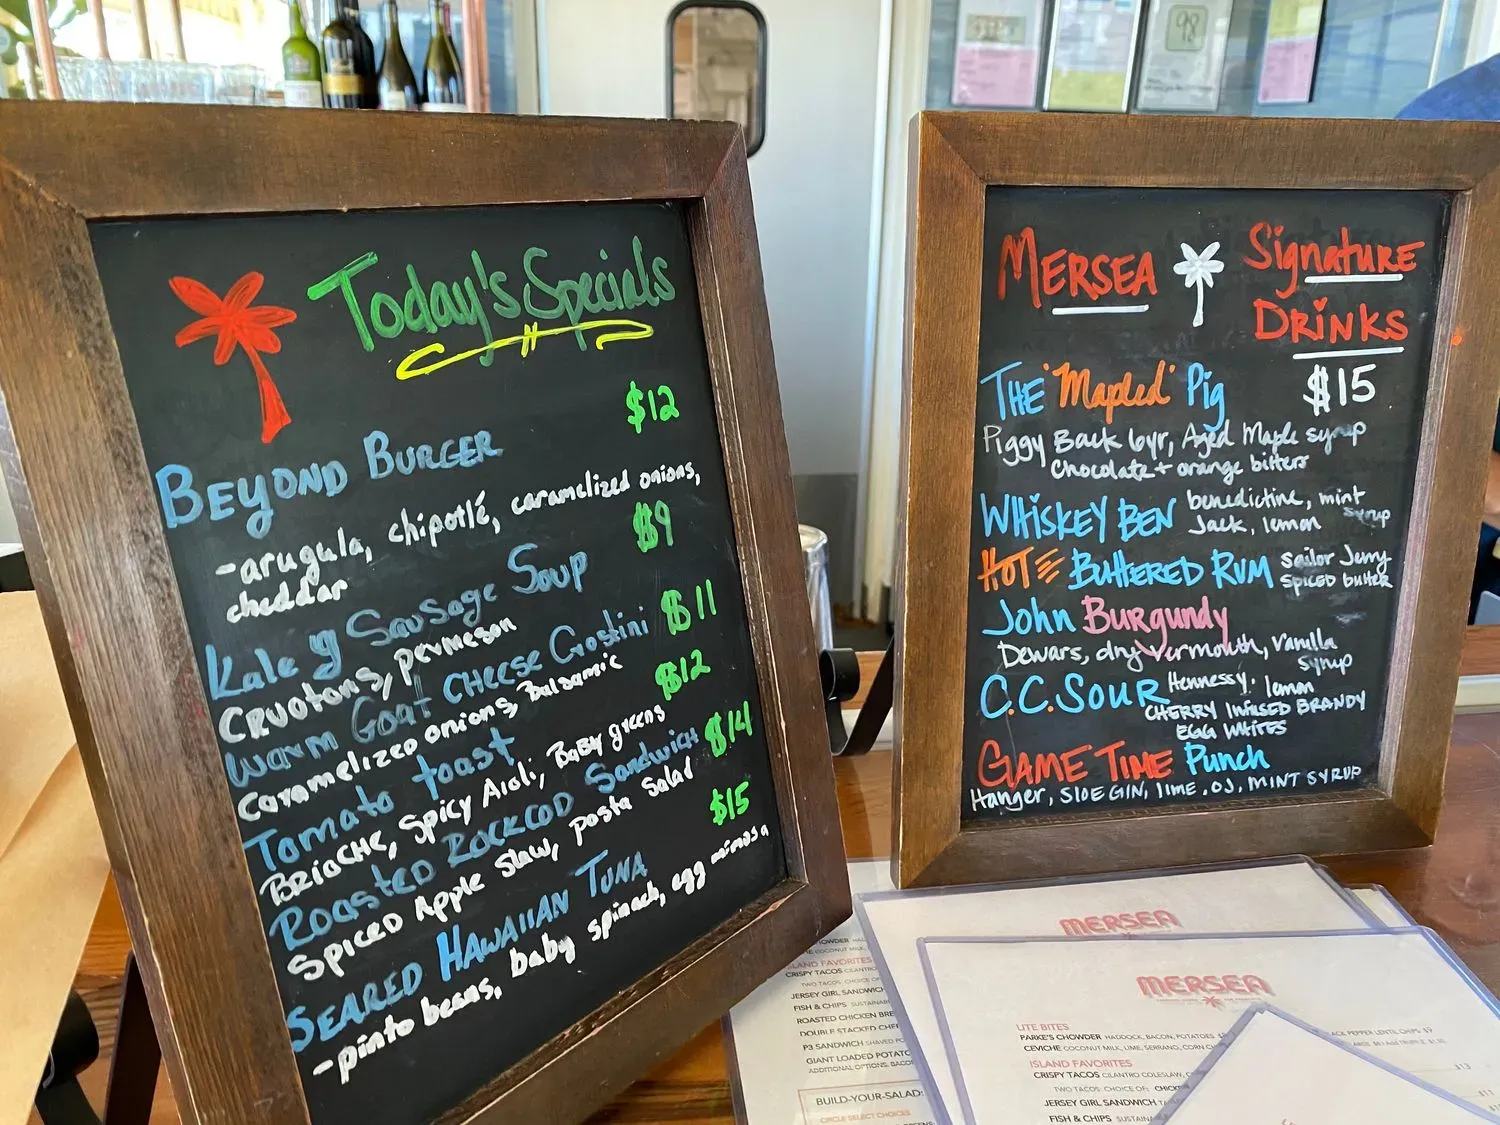 Today's Specials
$12
BEYOND BURGER
-arugula, chipotlé, caramelized onions,
cheddar
$9
Kale & Sausage Soup
CRUOTONS, permeson
$11
WARM GOAT CHEESE Crostini
Caramelized onions, Balsamic
$12
Tomato toast
BRIOCHE, Spicy Aioli, Baby greens
$14
ROASTED ROCKCOD Sandwich
Spiced Apple Slaw, pasta Salad
$15
SEARED HAWAIIAN TUNA
-pinto beans, baby spinach, egg mimosa
MERSEA
Signature
DRINKS
THE 'Mapled' Pig $15
Piggy Back 6yr, Aged Maple syrup
chocolate + orange bitters
WHISKEY BEN benedictine, mint
Jack, lemon syrup
HOT BUTTERED RUM sailor Jerry
spiced butter
John Burgundy
Dewars, dry Vermouth, Vanilla
syrup
C.C. SOUR Hennessy. lemon
CHERRY INFUSED BRANDY
EGG WHITES
GAME TIME Punch
Hanger, SIDE GIN, lime, OJ, MINT SYRUP
MERSEA
MERSEA
CHOWDER
ISLAND FAVORITES
CRISPY TACOS
TWO TACOS: CHOICE OF
JERSEY GIRL SANDWICH
FISH & CHIPS
ROASTED CHICKEN
DOUBLE STACKED
P3 SANDWICH
GIANT LOADED
ADDITIONAL OPTIONS,
BUILD-YOUR-SALAD:
CIRCLE SELECT CHOICES
LITE BITES
PARKE'S CHOWDER HADDOCK, BACON, POTATOES
CEVICHE COCONUT MILK, LIME, SERRANO, CORN
ISLAND FAVORITES
CRISPY TACOS CILANTRO COLESLAW,
TWO TACOS: CHOICE OF:
JERSEY GIRL SANDWICH
FISH & CHIPS